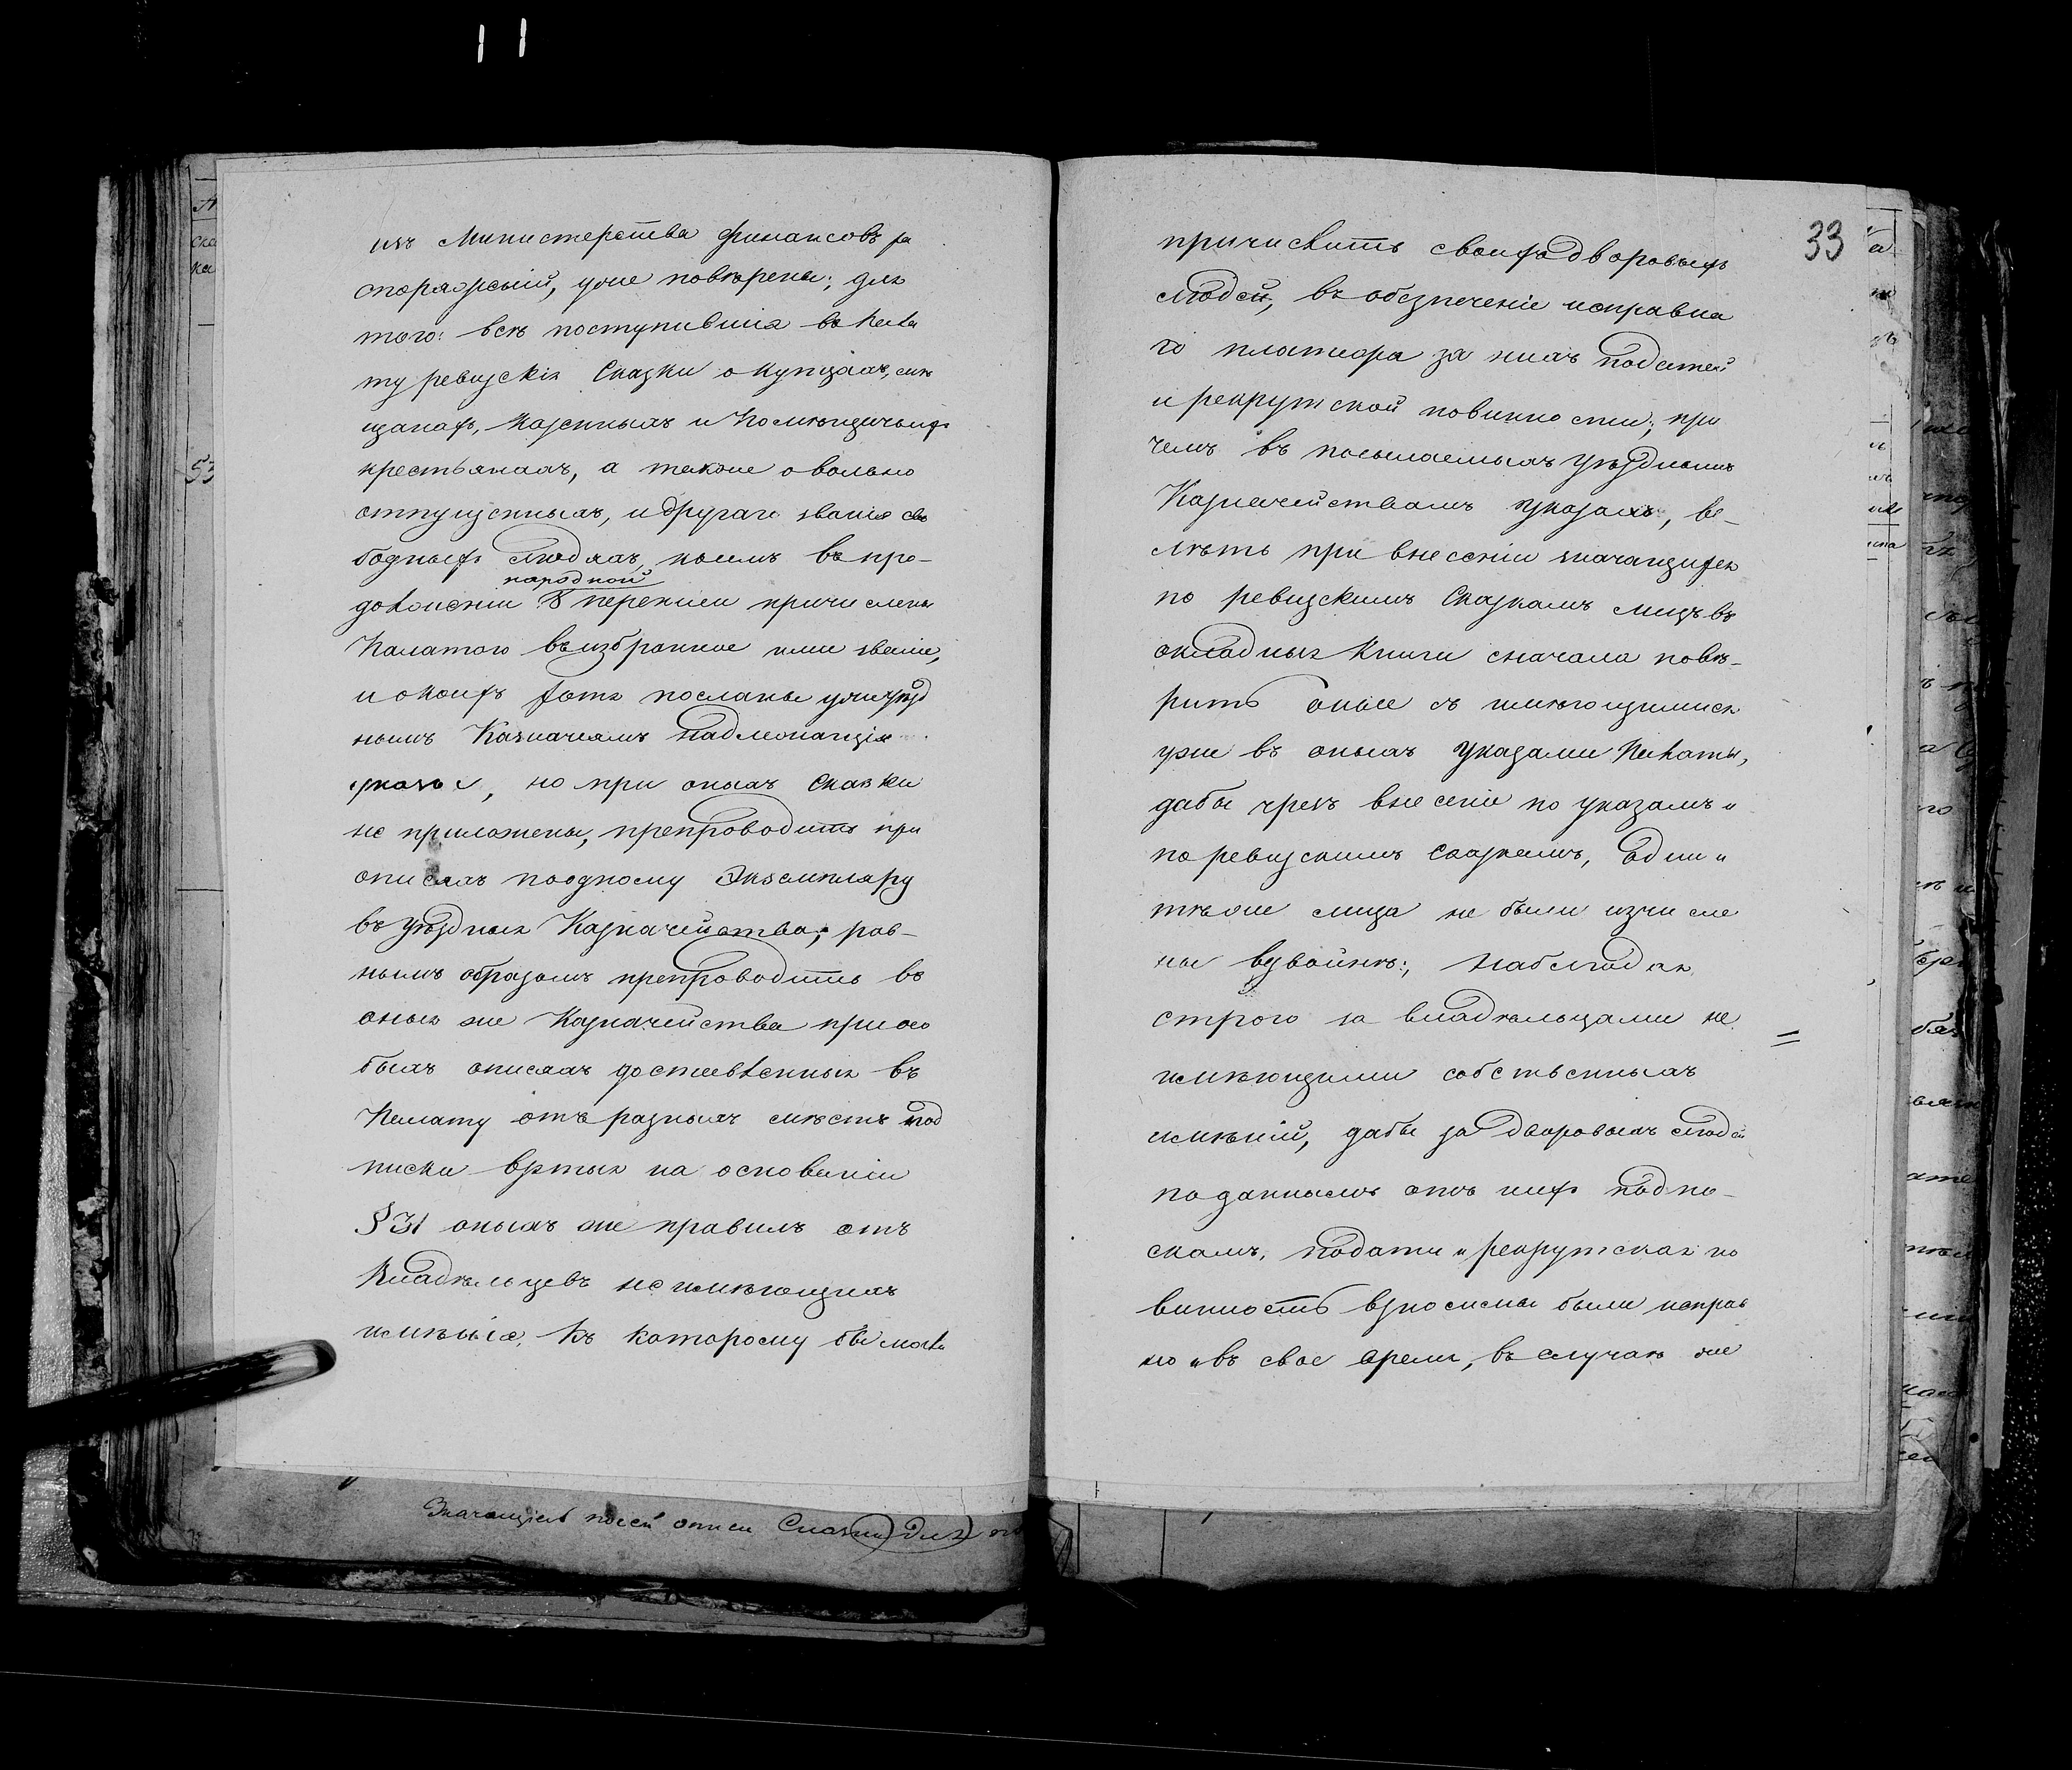 изъ Министерства финансовъ ра
споряженій, уже повѣрены; для
того: всѣ поступившія въ Пала
ту ревизскія Сказки о купцахъ, мѣ
щанахъ, Казенныхъ и Помѣщичьихъ
крестьянахъ, а также о вольно
отпущенныхъ, и другаго званія сво
бодныхъ людяхъ, коимъ въ про-
должении 8 народной переписи причислены
Палатою въ избранное ими званіе,
и о коихъ хотя посланы уже уѣзд
нымъ Казначеямъ надлежащіе
указы, но при оныхъ Сказки
не приложены, препроводить при
описяхъ по одному Экземпляру
въ уѣздныя Казначейства; рав-
нымъ образомъ препроводить въ
оныя же Казначейства при осо
быхъ описяхъ доставленныя въ
Палату отъ разныхъ мѣстъ под
писки взятыя на основаніи
§ 31 оныхъ же правилъ отъ
Владѣльцевъ не имѣющихъ
имѣнія, къ которому бы могли
Значащіеся по сей описи Сказки для
33
причислить своихъ дворовыхъ
людей, въ обезпеченіе исправна
го платежа за нихъ податей
и рекрутской повинности; при
чемъ въ посылаемыхъ уѣзднымъ
Казначействамъ указахъ, ве-
лѣть при внесеніи значащихся
по ревизскимъ Сказкамъ лицъ въ
окладныя Книги сначала повѣ-
рить оные съ имѣющимися
уже въ оныхъ указами Палаты,
дабы чрезъ внесеніе по указамъ и
по ревизскимъ сказкамъ, одни и
тѣже лица не были изчисле
ны вдвойнѣ; наблюдая
строго за владѣльцами не
имѣющими собственныхъ
имѣній, дабы за дворовыхъ людей
по даннымъ отъ нихъ подпи-
скамъ, подати и рекрутская по
винность взносимы были исправ
но и въ свое время, въ случаѣ же